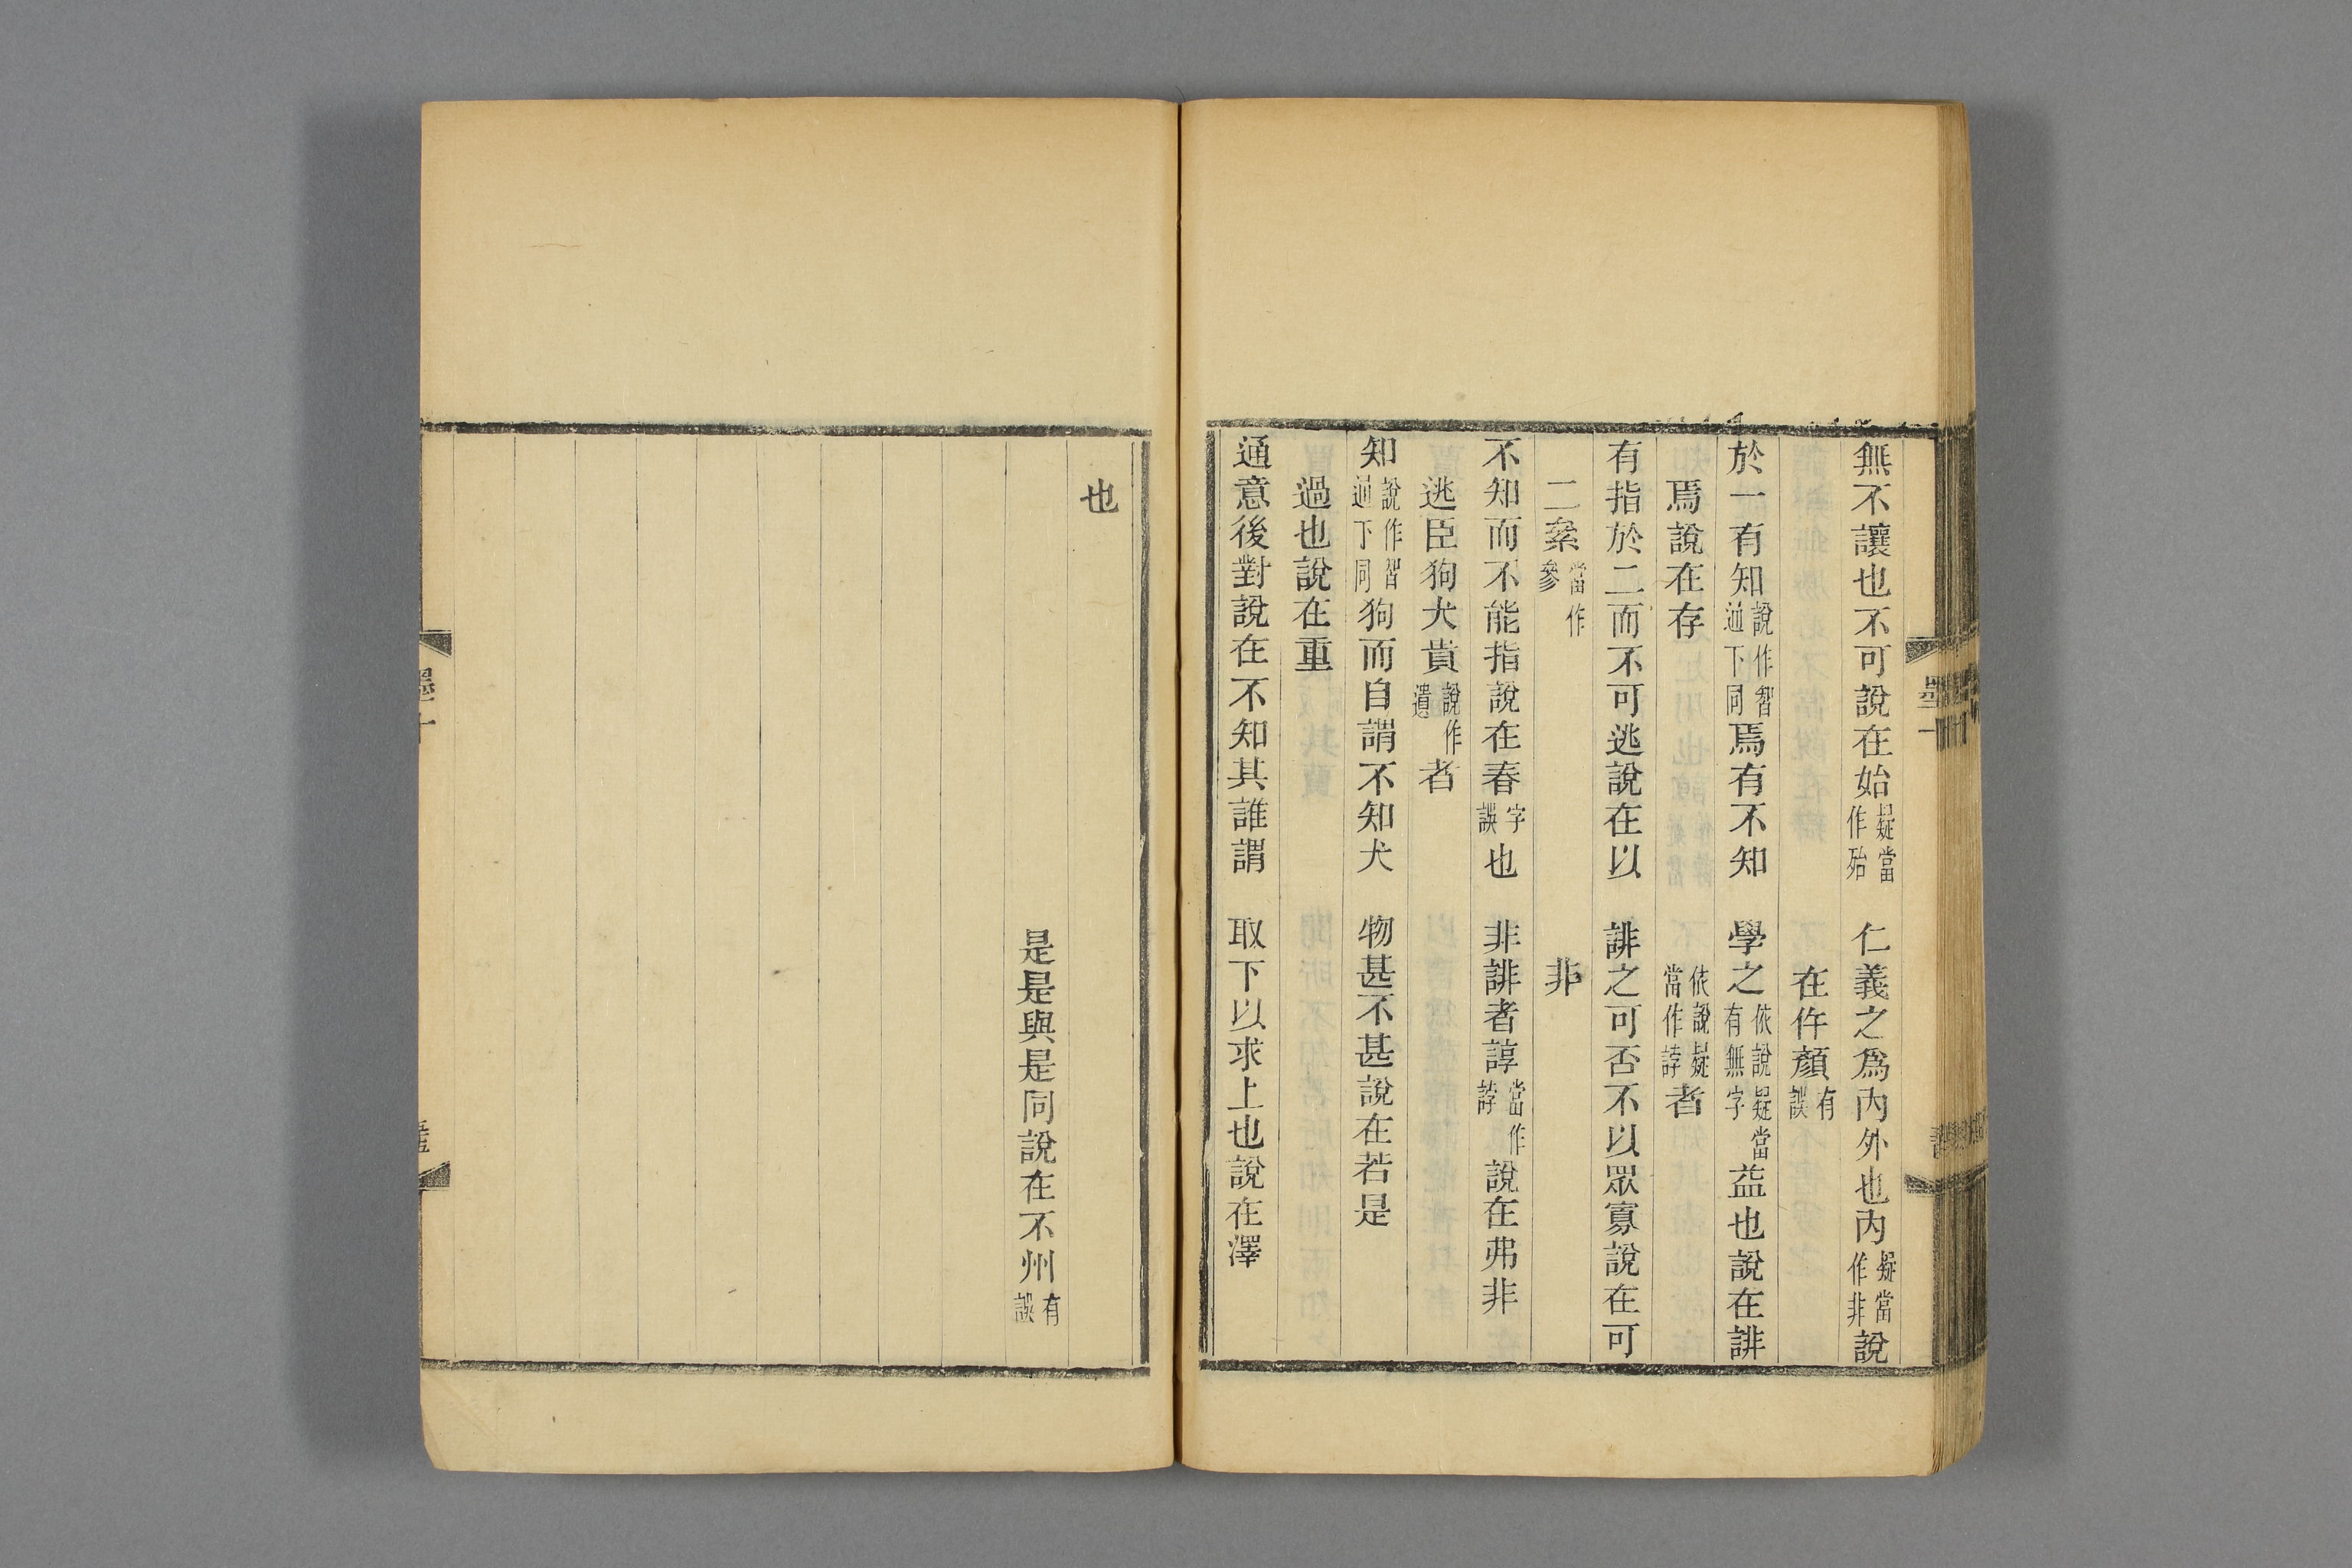 無不讓也不可說在始疑當作殆　仁義之爲內外也內疑當作非說
在仵顏有誤
於一有知說作智通下同焉有不知　學之依說疑當有無字益也說在誹
焉說在存　依說疑當作誖者
有指於二而不可逃說在以　誹之可否不以眾寡說在可
二絫當作參　非
不知而不能指說在春字誤也　非誹者諄當作誖說在弗非
逃臣狗犬貴說作遺者
知說作智通下同狗而自謂不知犬　物甚不甚說在若是
過也說在重
通意後對說在不知其誰謂　取下以求上也說在澤
也
是是與是同說在不州有誤